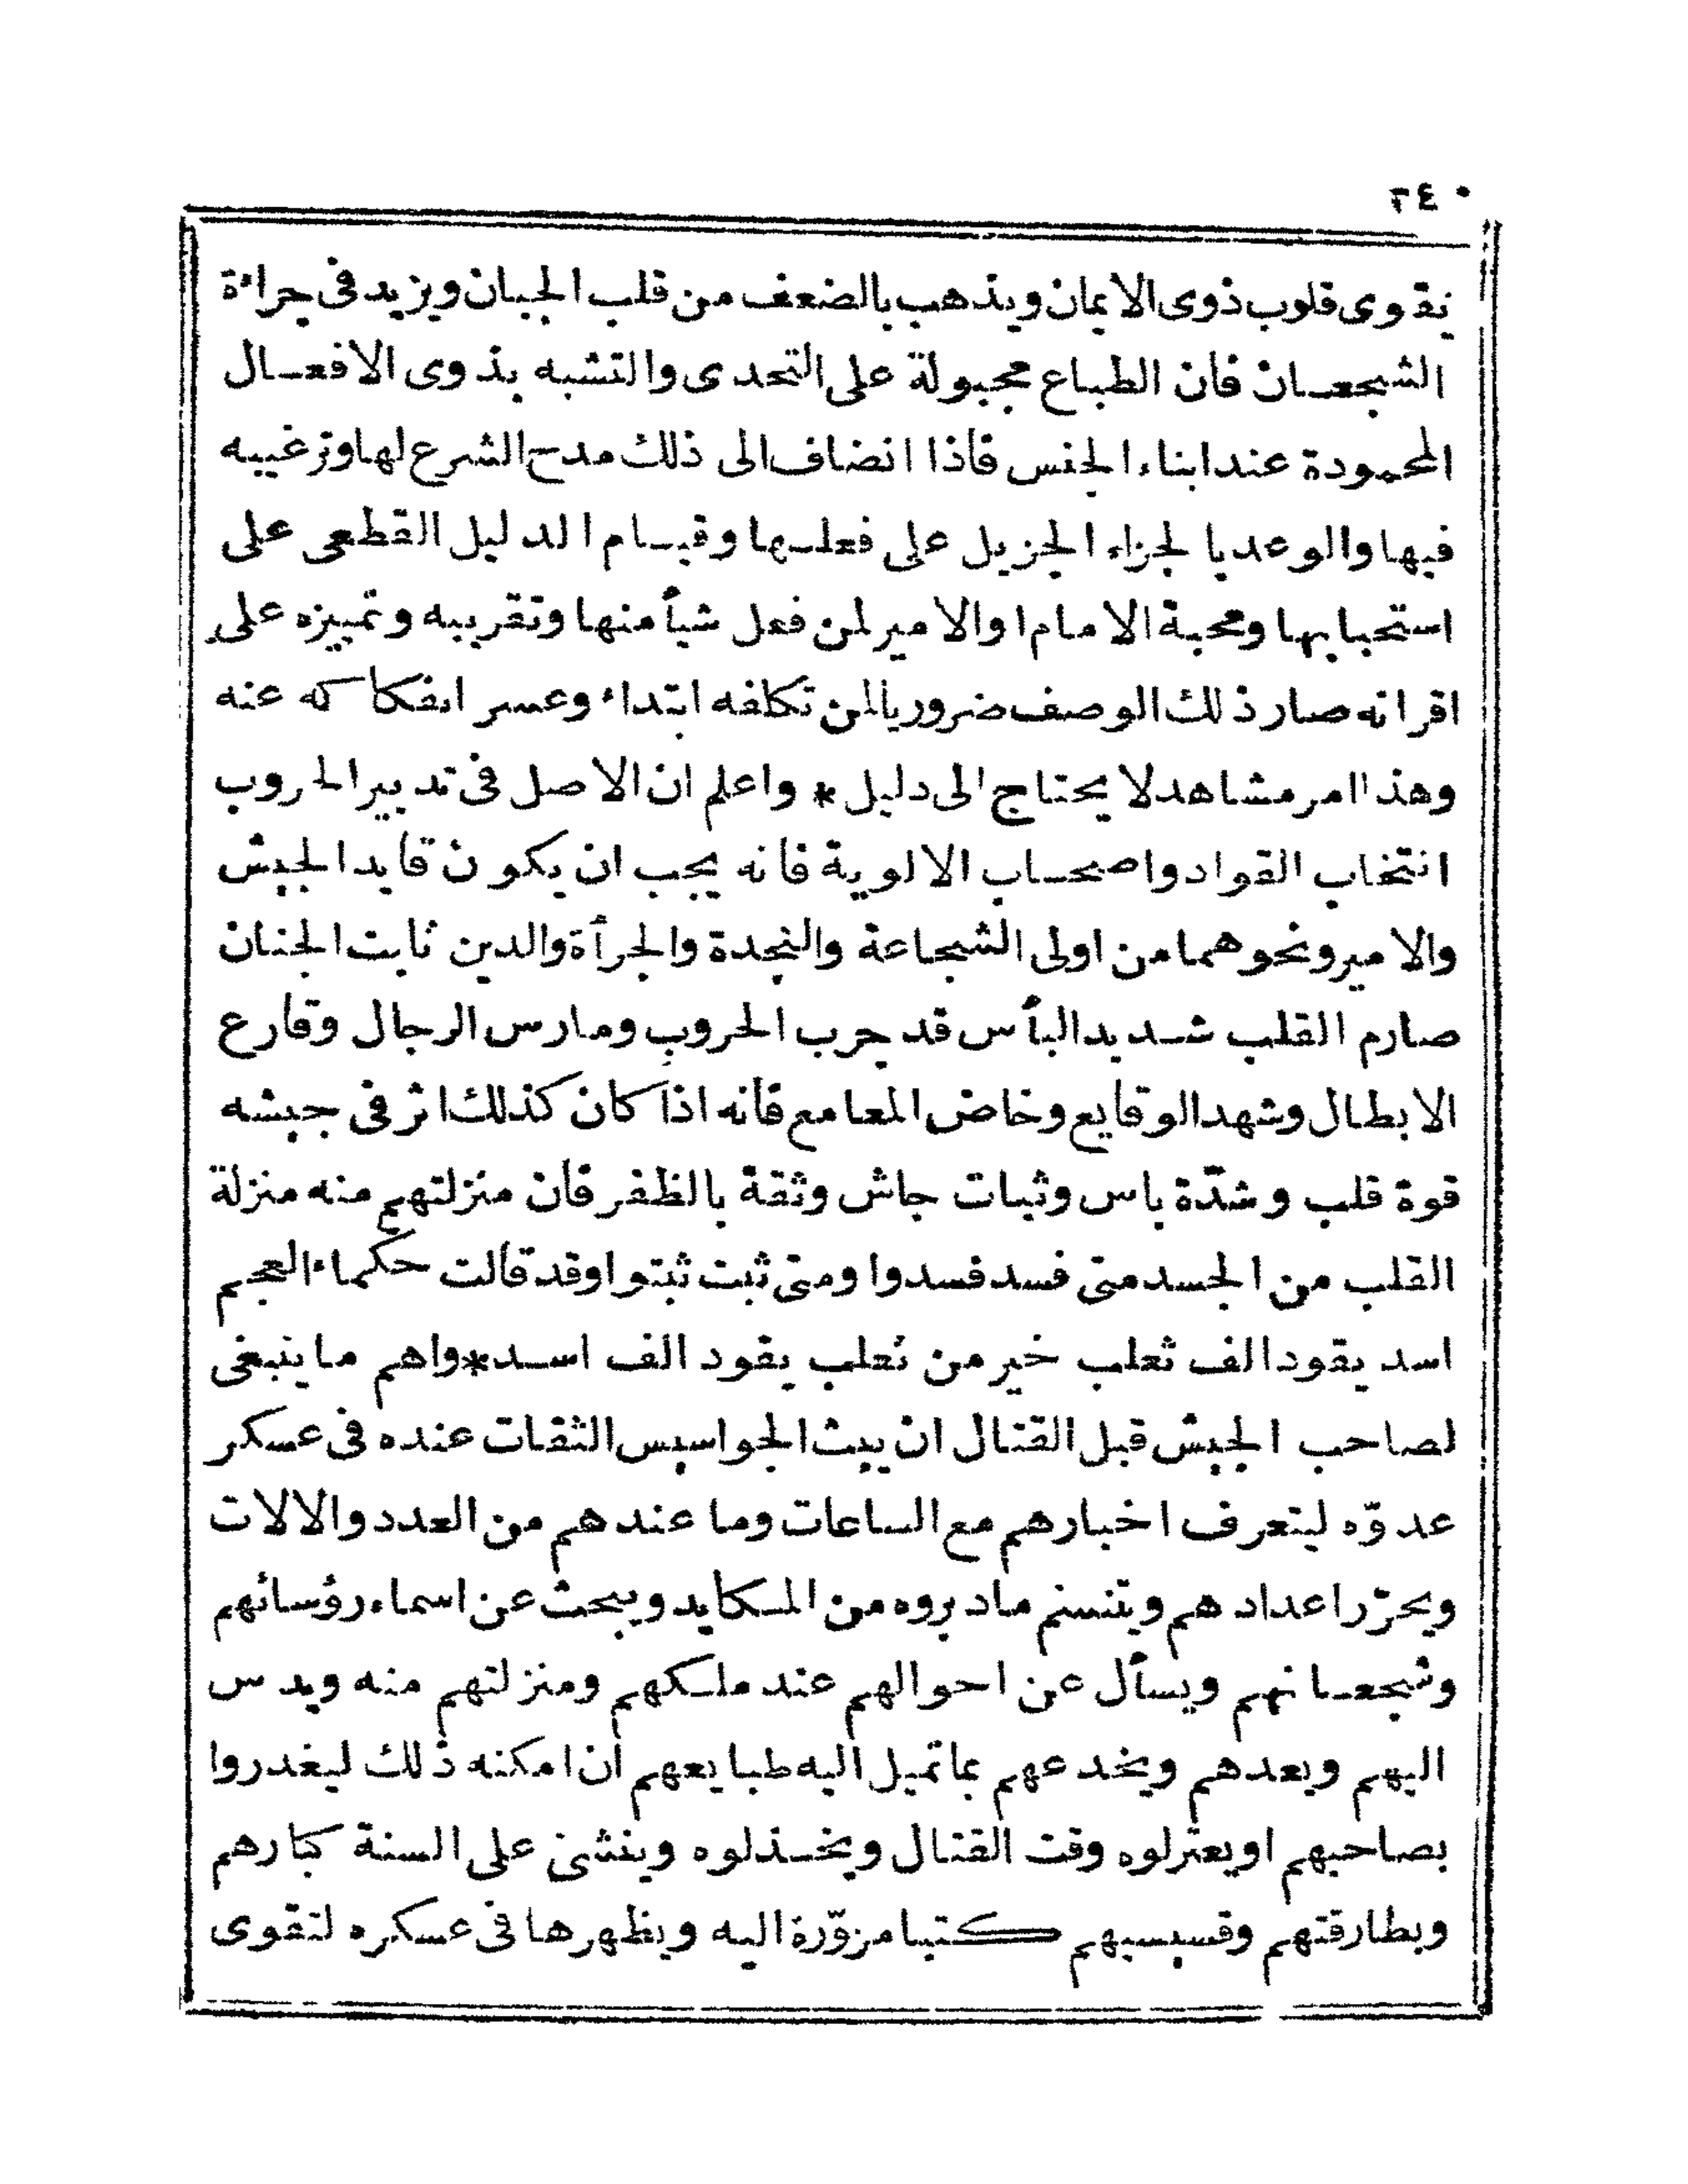 ٣٤٠
يقوى قلوب ذوى الايمان ويذهب بالضعف من قلب الجبان ويزيد فى جراءة
الشجعان فان الطباع مجبولة على التحدى والتشبه بذوى الافعال
المحمودة عند ابناء الجنس فاذا انضاف الى ذلك مدح الشرع لها وترغيبه
فيها والوعد بالجزاء الجزيل على فعلها وقيام الدليل القطعى على
استحبابها ومحبة الامام او الامير لمن فعل شيأ منها وتقريبه وتمييزه على
اقرانه صار ذلك الوصف ضروريا لمن تكلفه ابتداء وعسر انفكاكه عنه
وهذا امر مشاهد لا يحتاج الى دليل * واعلم ان الاصل فى تدبير الحروب
انتخاب القواد واصحاب الالوية فانه يجب ان يكون قايد الجيش
والامير ونحوهما من اولى الشجاعة والنجدة والجرأة والدين ثابت الجنان
صارم القلب شديد البأس قد جرب الحروب ومارس الرجال وقارع
الابطال وشهد الوقايع وخاض المعامع فانه اذا كان كذلك اثر فى جيشه
قوة قلب وشدّة باس وثبات جاش وثقة بالظفر فان منزلتهم منه منزلة
القلب من الجسد متى فسد فسدوا ومتى ثبت ثبتوا وقد قالت حكماء العجم
اسد يقود الف ثعلب خير من ثعلب يقود الف اسد * واهم ما ينبغى
لصاحب الجيش قبل القتال ان يبث الجواسيس الثقات عنده فى عسكر
عدوّه ليتعرف اخبارهم مع الساعات وما عندهم من العدد والالات
ويحرّر اعدادهم ويتنسم ما دبروه من المكايد ويبحث عن اسماء رؤسائهم
وشجعانهم ويسأل عن احوالهم عند ملكهم ومنزلتهم منه ويدس
اليهم ويعدهم ويخدعهم بما تميل اليه طبايعهم ان امكنه ذلك ليغدروا
بصاحبهم او يعتزلوه وقت القتال ويخذلوه وينشئ على السنة كبارهم
وبطارقتهم وقسيسيهم كتبا مزوّرة اليه ويظهرها فى عسكره لتقوى